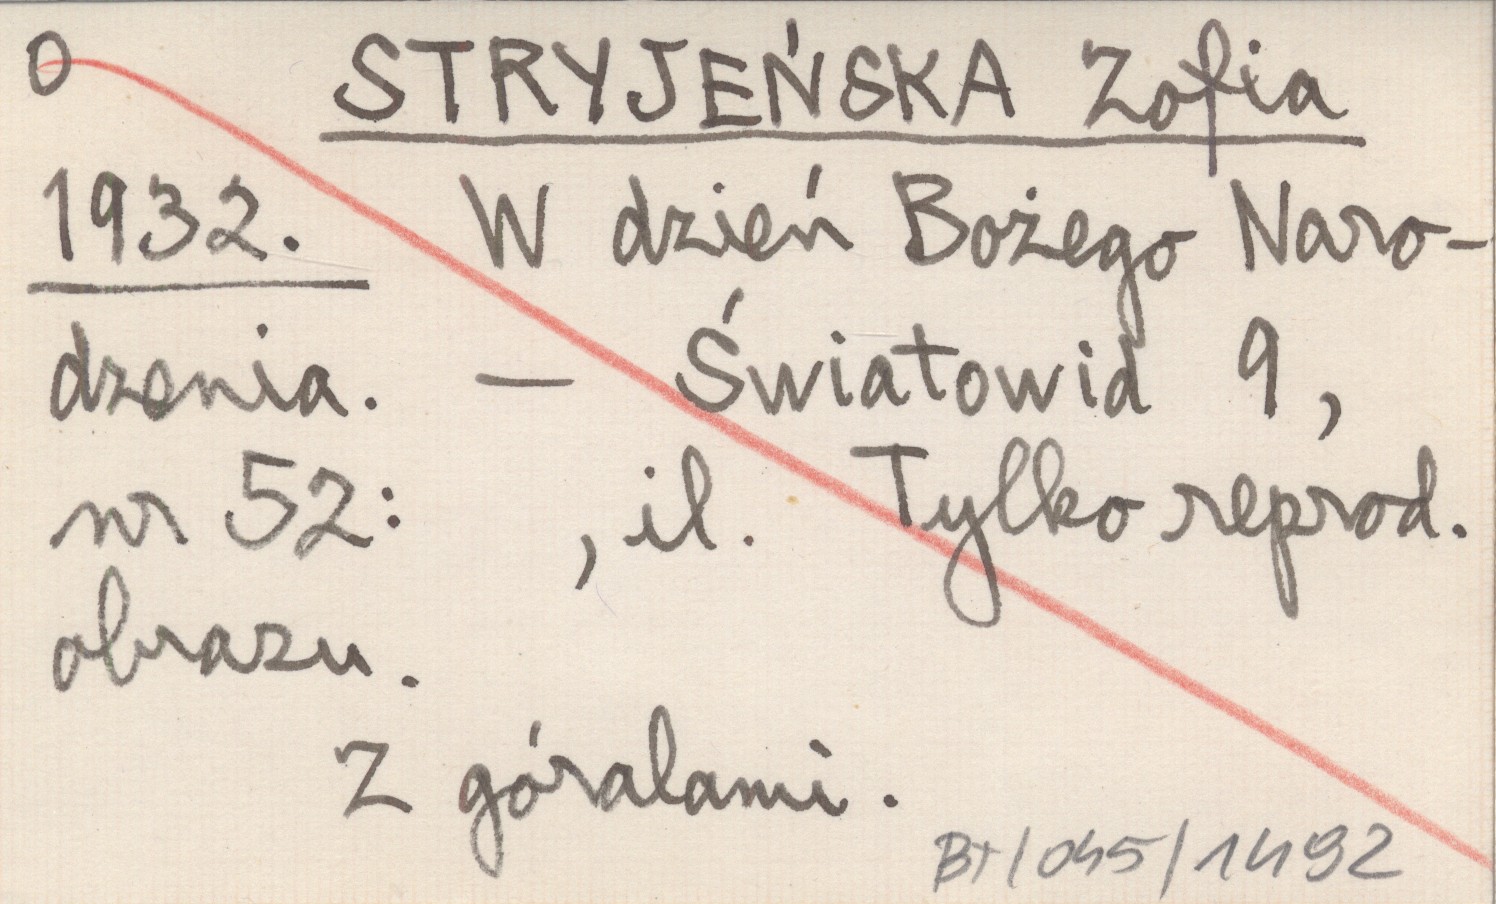 O STRYJEŃSKA Zofia
1932. W dzień Bożego Naro-
dzenia. — Światowid 9,
nr 52: , il. Tylko reprod.
obrazu.
Z góralami.
BT/045/1492